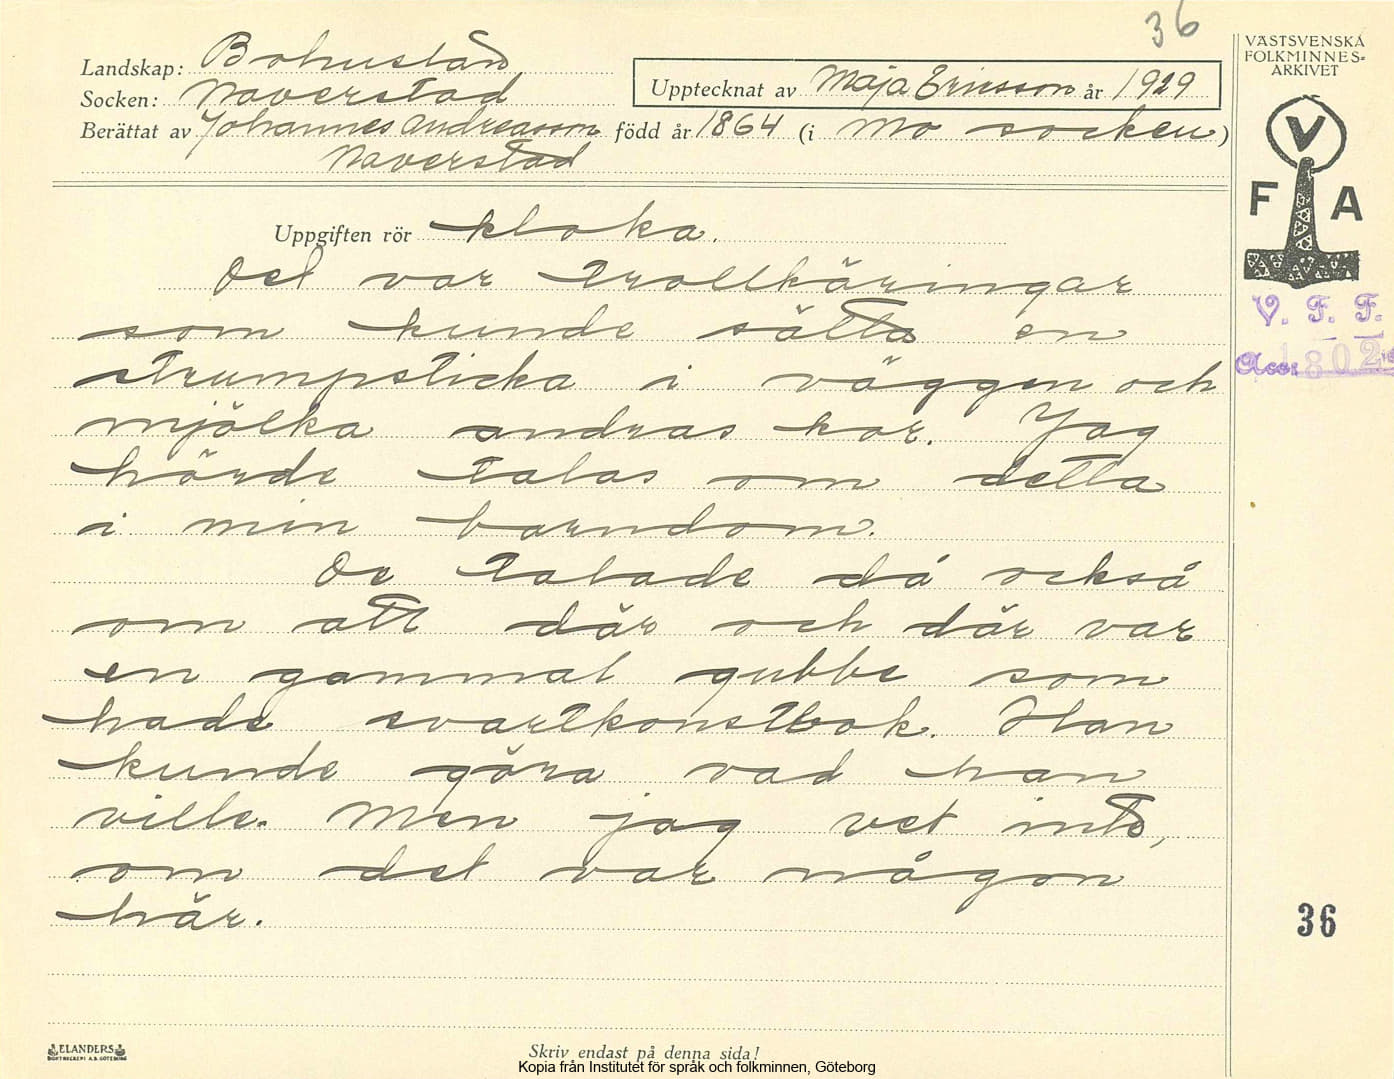 36
VÄSTSVENSKA
FOLKMINNES-
ARKIVET
Landskap: Bohuslän
Socken: Naverstad
Upptecknat av Maja Ericsson år 1929
Berättat av Johannes Andreasson född år 1864 (i Mo socken)
Naverstad
V
F A
Uppgiften rör kloka.
Det var trollkäringar
som kunde sätta en
strumpsticka i väggen och
mjölka andras kor. Jag
hörde talas om detta
i min barndom.
De talade då också
om att där och där var
en gammal gubbe som
hade svartkonstbok. Han
kunde göra vad han
ville. Men jag vet inte,
om det var någon
här.
V. F. F.
Acc: 1802
36
ELANDERS
BOKTRYCKERI A.B. GÖTEBORG
Skriv endast på denna sida!
Kopia från Institutet för språk och folkminnen, Göteborg